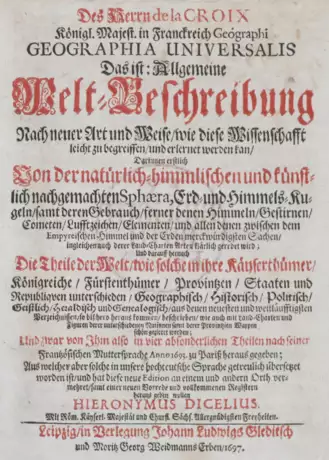 Des Herrn de la CROIX
Königl. Majest. in Franckreich Geographi
GEOGRAPHIA UNIVERSALIS
Das ist: Allgemeine
Welt-Beschreibung
Nach neuer Art und Weise/ wie diese Wissenschafft
leicht zu begreiffen/ und erlernet werden kan/
Darinnen erstlich
Von der natürlich-himmlischen und künst-
lich nachgemachten Sphæra, Erd- und Himmels-Ku-
geln/ samt deren Gebrauch/ ferner denen Himmeln/ Gestirnen/
Cometen/ Lufftzeichen/ Elementen/ und allen denen zwischen dem
Empyreischen Himmel und der Erden merckwürdigsten Sachen/
ingleichen auch derer Land-Charten Arten klärlich geredet wird;
Und darauf hernach
Die Theile der Welt/ wie solche in ihre Käyserthümer/
Königreiche/ Fürstenthümer/ Provintzen/ Staaten und
Republiqven unterschieden/ Geographisch/ Historisch/ Politisch/
Geistlich/ Heraldisch und Genealogisch/ aus denen neuesten und weitläufftigsten
schön gezieret worden;
Und zwar von Ihm also in vier absonderlichen Theilen nach seiner
Frantzösischen Muttersprache Anno 1693. zu Pariß heraus gegeben;
Aus welcher aber solche in unsere hochteutsche Sprache getreulich übersetzet
worden ist/ und hat diese neue Edition an einem und andern Orth ver-
mehret/ samt einer neuen Vorrede und vollkommenen Registern
heraus geben wollen
HIERONYMUS DICELIUS.
Mit Röm. Käyserl. Majestät und Churf. Sächs. Allergnädigsten Freyheiten.
Leipzig/ in Verlegung Johann Ludwigs Gleditsch
und Moritz Georg Weidmanns Erben/ 1697.